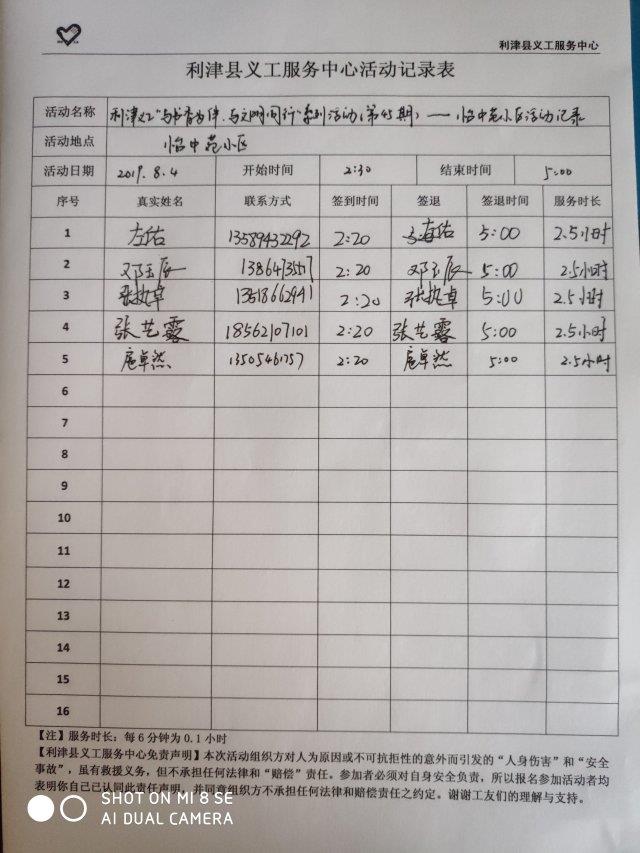 利津县义工服务中心
利津县义工服务中心活动记录表
活动名称 利津义工"与书香为伴、与文明同行"系列活动(第45期)——怡中苑小区活动记录
活动地点 怡中苑小区
活动日期 2019.8.4 开始时间 2:30 结束时间 5:00
序号 真实姓名 联系方式 签到时间 签退 签退时间 服务时长
1 左佑 13589432292 2:20 左佑 5:00 2.5小时
2 邓玉辰 2:20 邓玉辰 5:00 2.5小时
3 张执卓 2:20 张执卓 5:00 2.5小时
4 张艺露 18562107101 2:20 张艺露 5:00 2.5小时
5 扈卓然 13505461757 2:20 扈卓然 5:00 2.5小时
6
7
8
9
10
11
12
13
14
15
16
【注】服务时长：每6分钟为0.1小时
【利津县义工服务中心免责声明】本次活动组织方对人为原因或不可抗拒性的意外而引发的“人身伤害”和“安全
事故”，虽有救援义务，但不承担任何法律和“赔偿”责任。参加者必须对自身安全负责，所以报名参加活动者均
表明你自己已认同此责任声明，并同意组织方不承担任何法律和赔偿责任之约定。谢谢工友们的理解与支持。
SHOT ON MI 8 SE
AI DUAL CAMERA